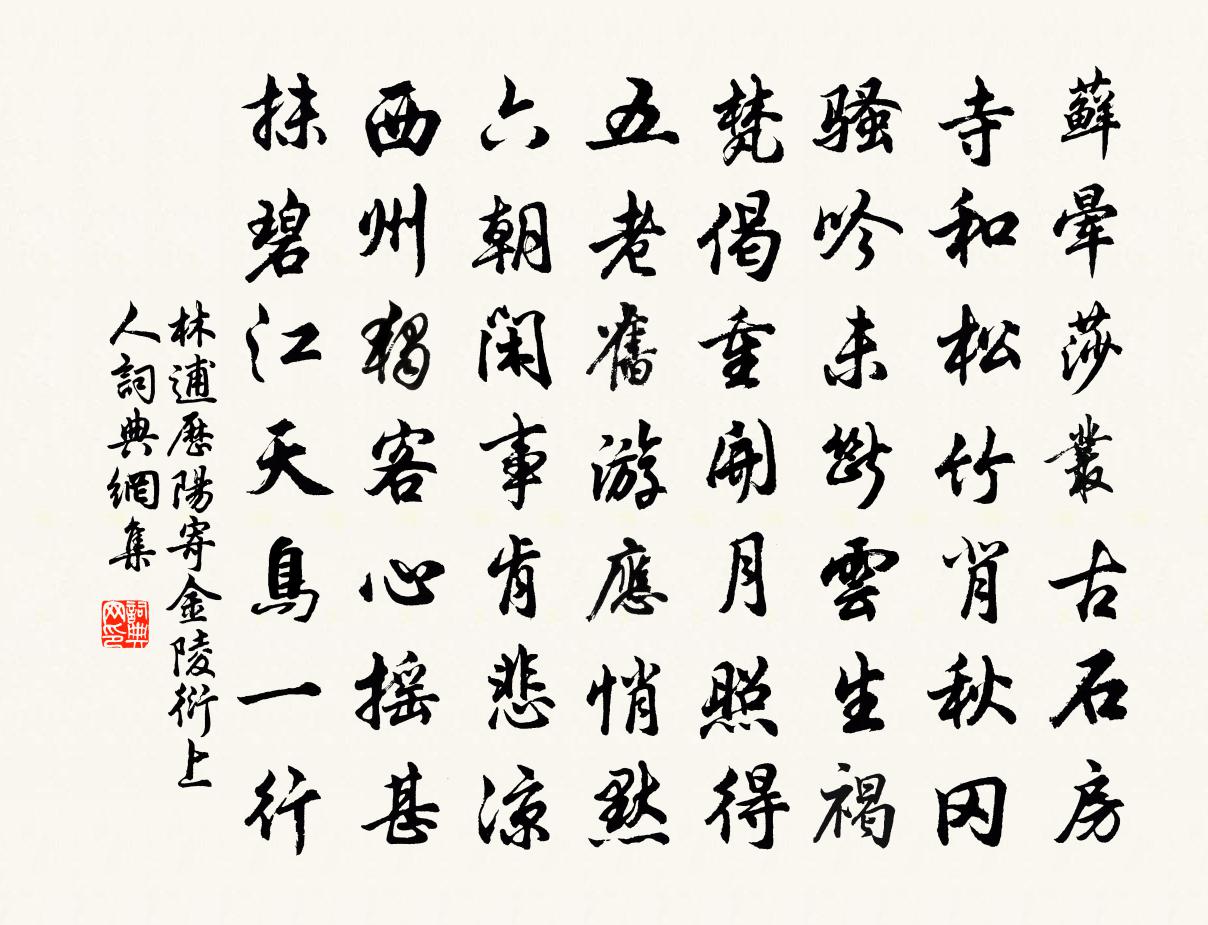 蘚暈莎叢古石房
寺和松竹背秋冈
騷吟未斷雲生褐
梵偈重開月照得
五老舊游應悄默
六朝閑事肯悲涼
西州獨客心搖甚
抹碧江天鳥一行
林逋歷陽寄金陵衍上
人詞典網集
詞典
网印